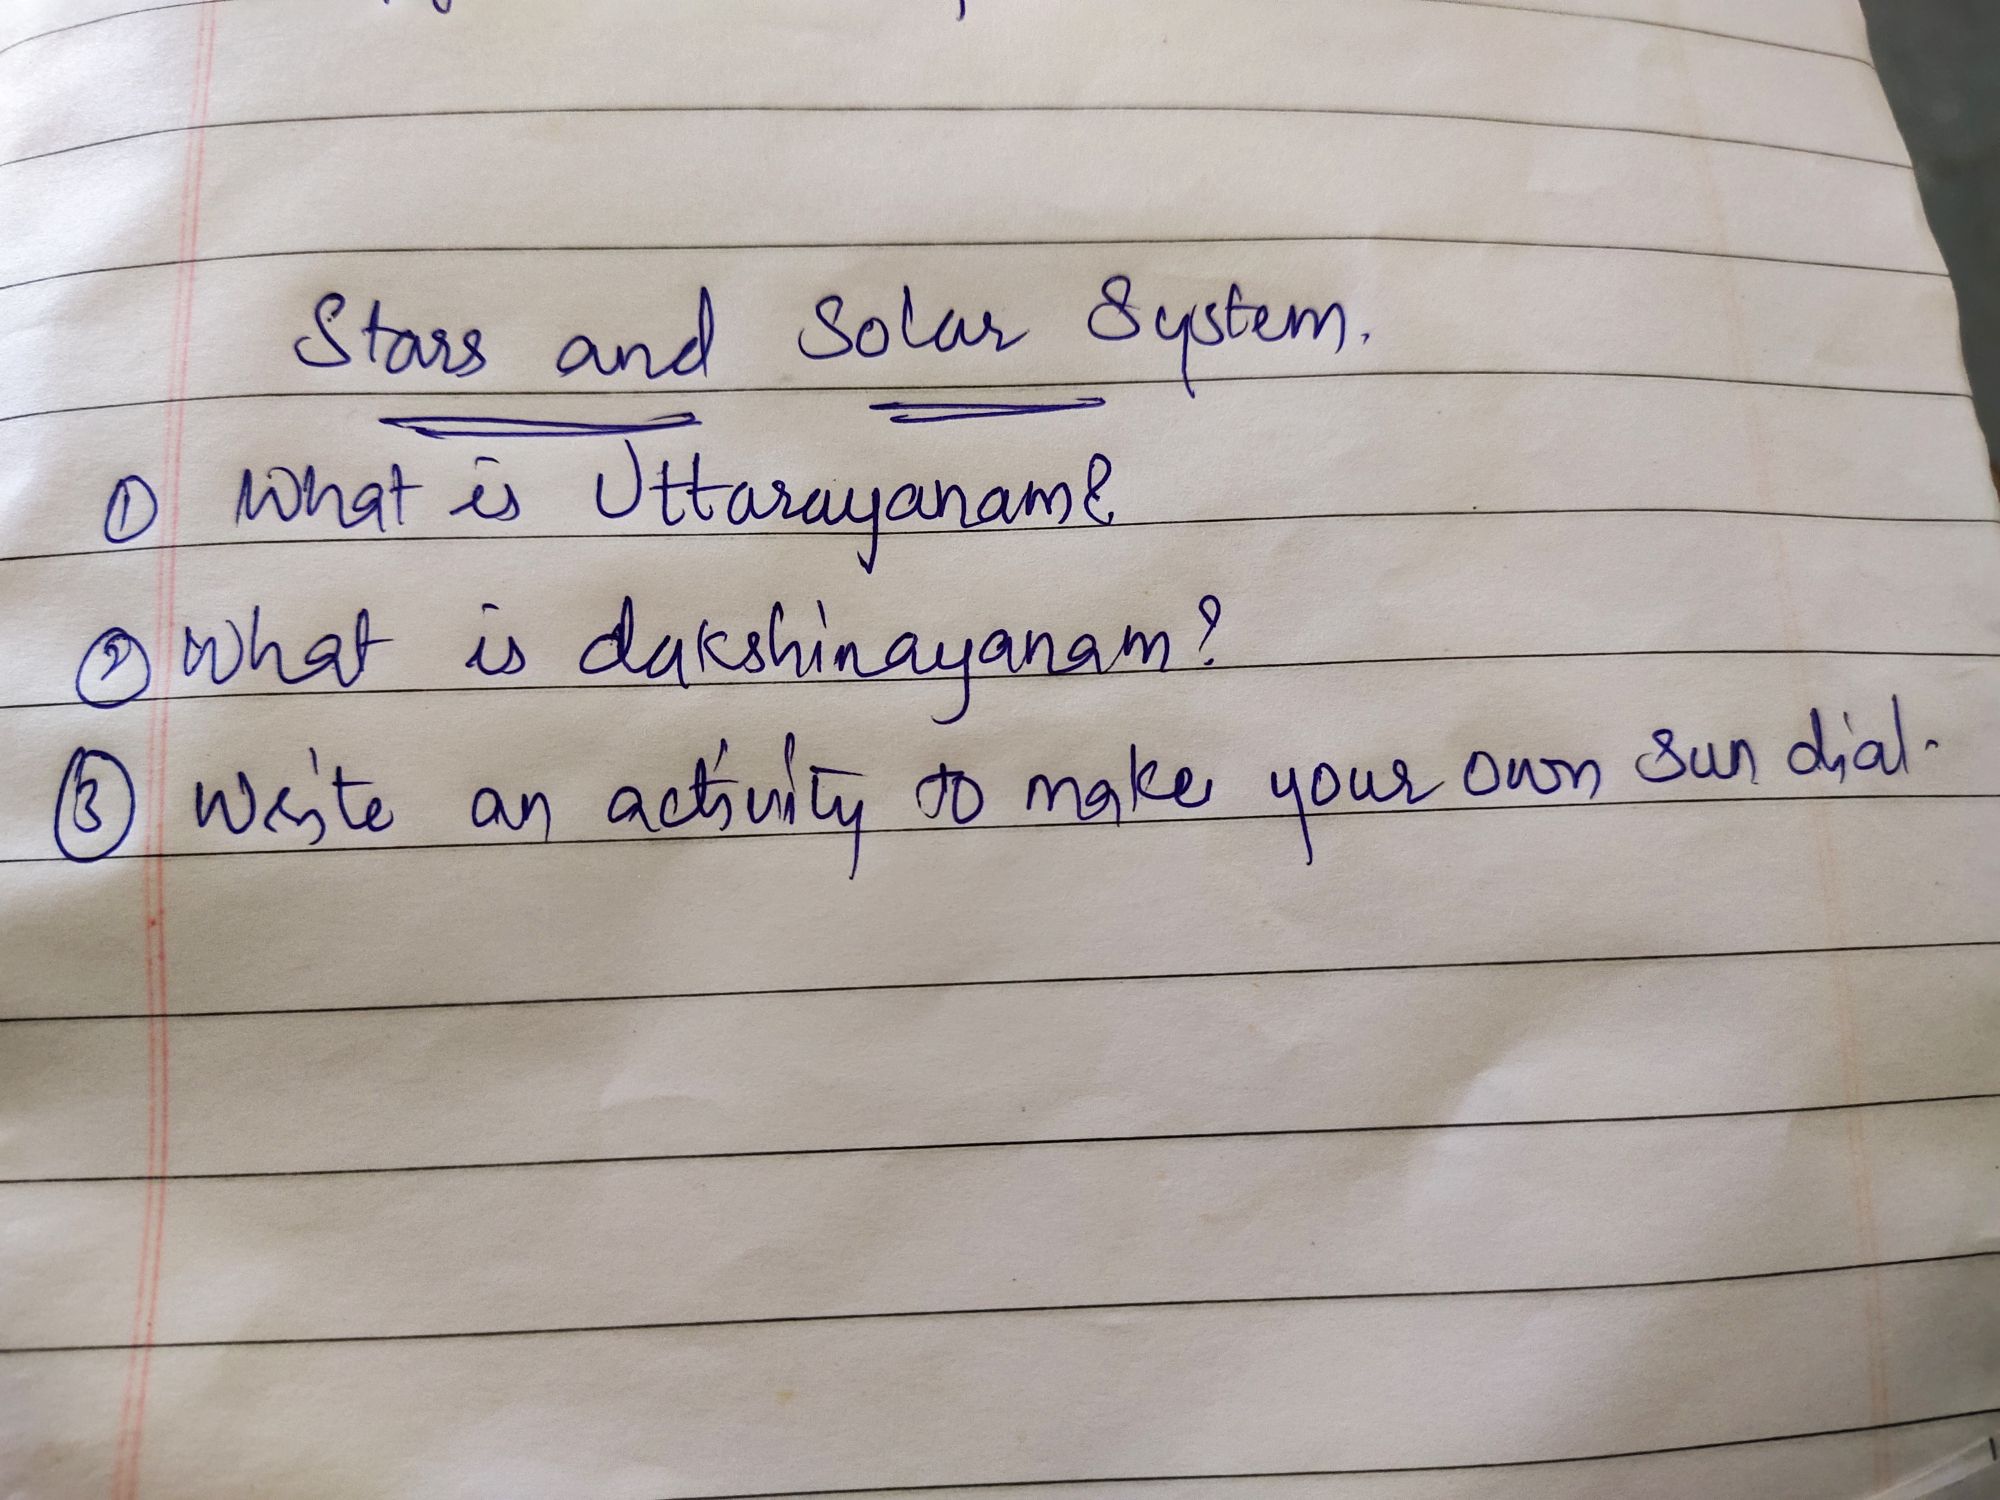 Stars and Solar System.
① What is Uttarayanam?
② What is dakshinayanam?
③ Write an activity to make your own sun dial.